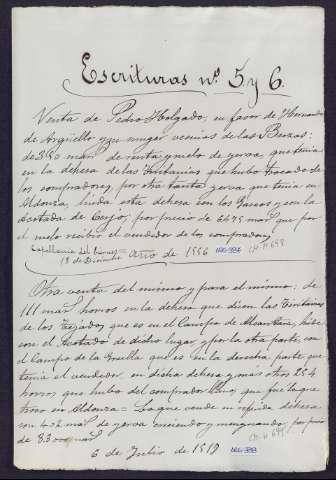 Escrituras nº 5 y 6.
Venta de Pedro Holgado, en favor de Hernando
de Argüello y su muger vecinos de las Brozas:
de 390 mars. de renta y suelo de yerva, que tenía
en la dehesa de las que hubo trocado de
los compradores, por otra tanta yerva que tenía en
Aldonza, linda esta dehesa con los y con la
por precio de 6475 mars. que por
el suelo recibió el vendedor de los compradores,
18 de Diciembre = año de 1556
Otra venta del mismo y para el mismo: de
111 mars. horros en la dehesa que dicen las
de los Tejados, que es en el Campo de Alcantara, linda
con el de dicho lugar, y por la otra parte, con
el Campo de la que es en la derecha parte que
tenia el vendedor, en dicha dehesa y más otros 254
horros que hubo del comprador que fue la que
troco en Aldonza = La que vende en referida dehesa
son 402 mars. de yerva creciendo y menguando, por precio
de
6 de Julio de 1519